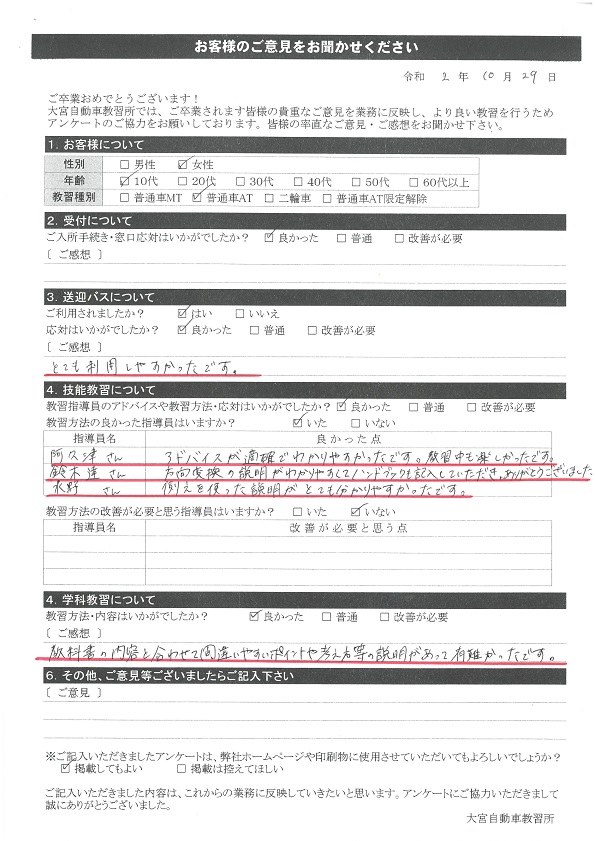 お客様のご意見をお聞かせください
令和 2 年 10 月 29 日
ご卒業おめでとうございます！
大宮自動車教習所では、ご卒業されます皆様の貴重なご意見を業務に反映し、より良い教習を行うため
アンケートのご協力をお願いしております。皆様の率直なご意見・ご感想をお聞かせ下さい。
1. お客様について
性別 □ 男性 ☑ 女性
年齢 ☑ 10代 □ 20代 □ 30代 □ 40代 □ 50代 □ 60代以上
教習種別 □ 普通車MT ☑ 普通車AT □ 二輪車 □ 普通車AT限定解除
2. 受付について
ご入所手続き・窓口応対はいかがでしたか？ ☑ 良かった □ 普通 □ 改善が必要
〔 ご感想 〕
3. 送迎バスについて
ご利用されましたか？ ☑ はい □ いいえ
応対はいかがでしたか？ ☑ 良かった □ 普通 □ 改善が必要
〔 ご感想 〕
とても利用しやすかったです。
4. 技能教習について
教習指導員のアドバイスや教習方法・応対はいかがでしたか？ ☑ 良かった □ 普通 □ 改善が必要
教習方法の良かった指導員はいますか？ ☑ いた □ いない
指導員名 良かった点
阿久津 さん アドバイスが適確でわかりやすかったです。教習中も楽しかったです。
鈴木達 さん 方向変換の説明がわかりやすくてハンドブックも記入していただき、ありがとうございました。
水野 さん 例えを使った説明がとても分かりやすかったです。
教習方法の改善が必要と思う指導員はいますか？ □ いた ☑ いない
指導員名 改善が必要と思う点
4. 学科教習について
教習方法・内容はいかがでしたか？ ☑ 良かった □ 普通 □ 改善が必要
〔 ご感想 〕
教科書の内容と合わせて間違いやすいポイントや考え方等の説明があって有難かったです。
6. その他、ご意見等ございましたらご記入下さい
〔 ご意見 〕
※ご記入いただきましたアンケートは、弊社ホームページや印刷物に使用させていただいてもよろしいでしょうか？
☑ 掲載してもよい □ 掲載は控えてほしい
ご記入いただきました内容は、これからの業務に反映していきたいと思います。アンケートにご協力いただきまして
誠にありがとうございました。
大宮自動車教習所